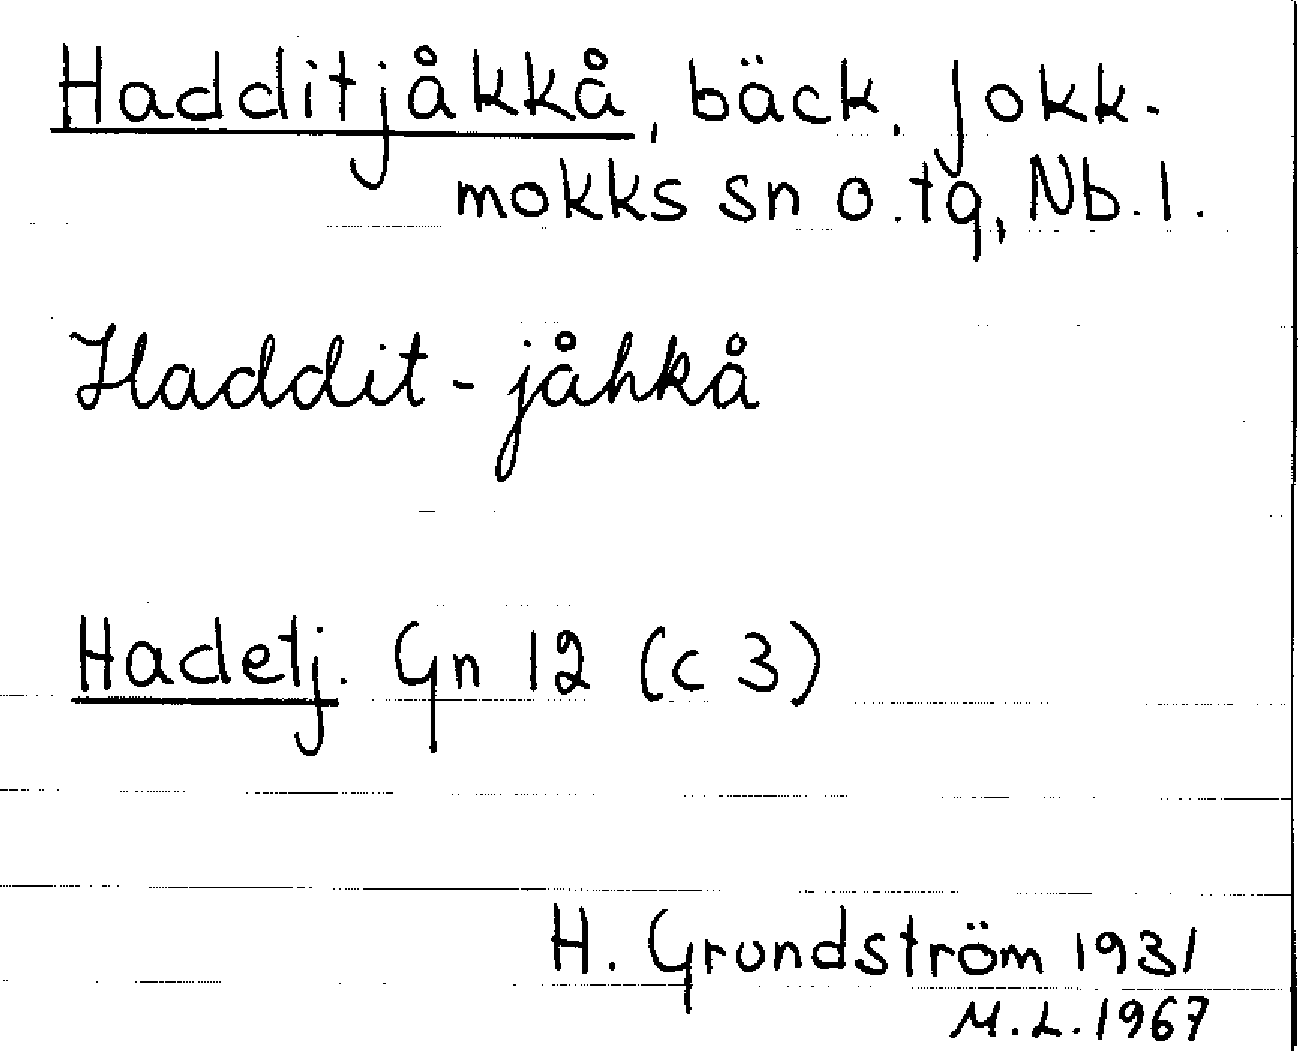 Hadditjåkkå, bäck, Jokk-
mokks sn o. tg, Nb. l.
Haddit-jåhkå
Hadetj. Gn 12 (c 3)
H. Grundström 1931
M.L. 1967